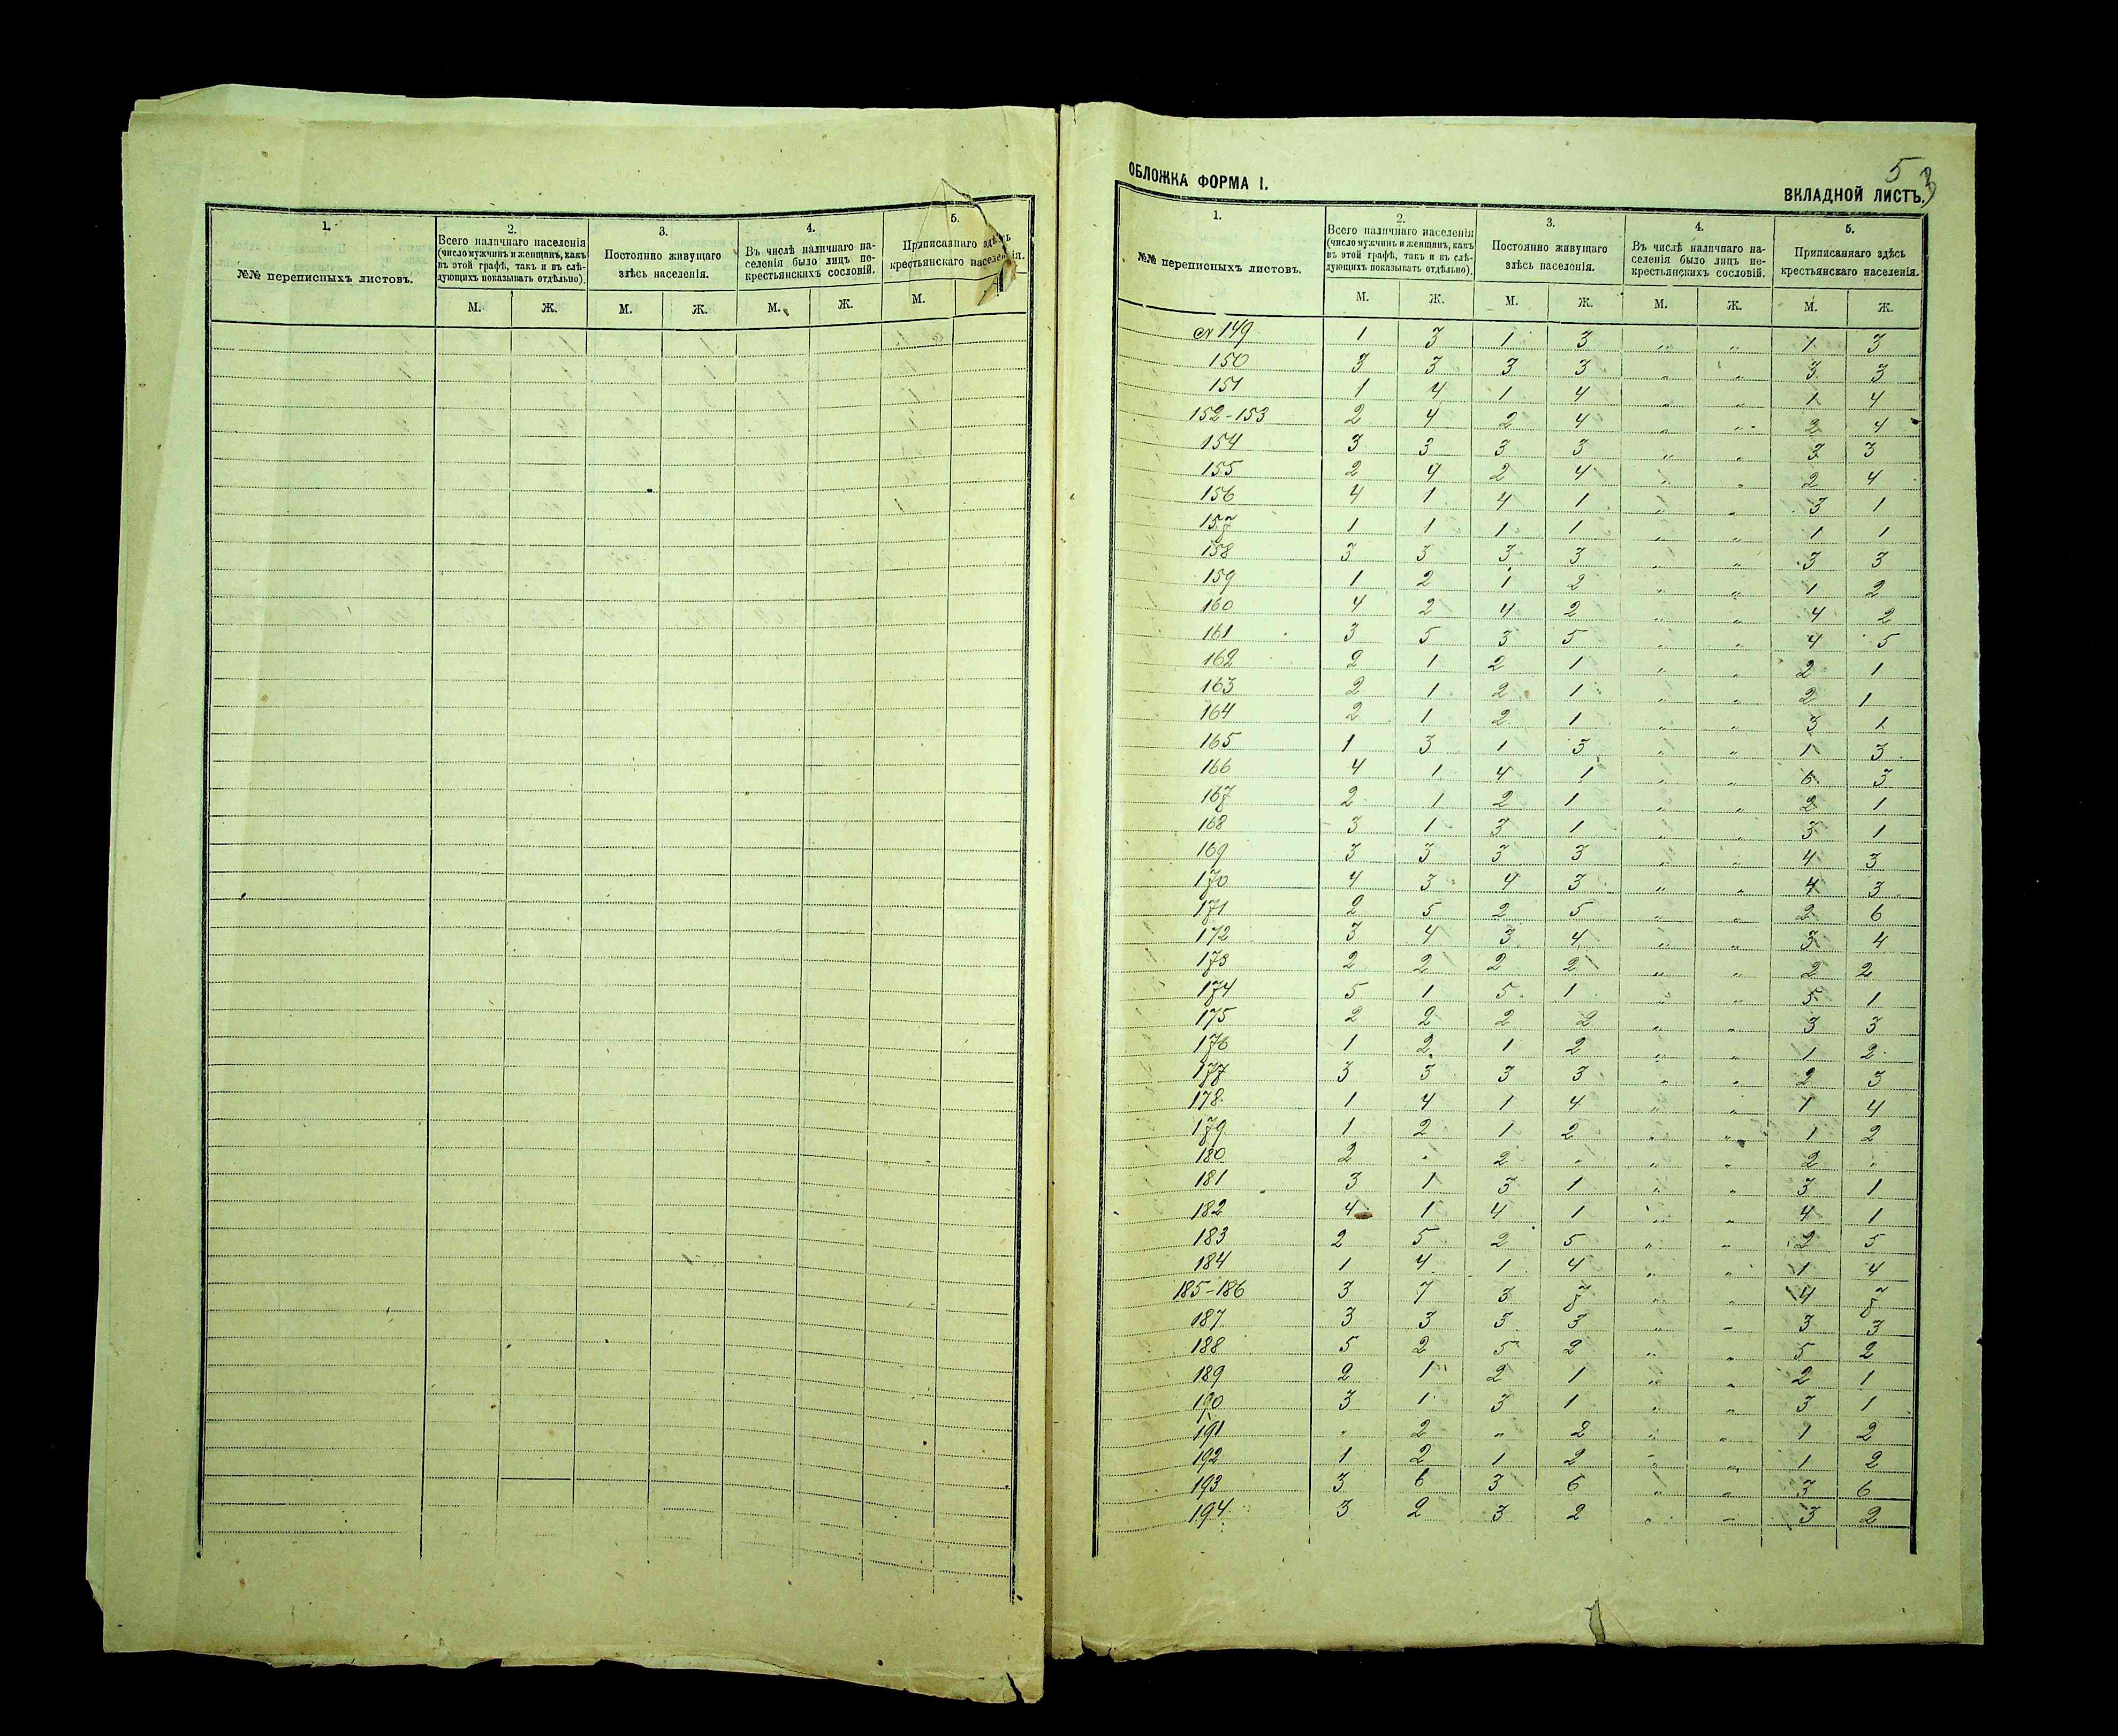 1. 2. 3. 4. 5.
№№ переписныхъ листовъ.
Всего наличнаго населенія
(число мужчинъ и женщинъ, какъ
въ этой графѣ, такъ и въ слѣ-
дующихъ показывать отдѣльно).
Постоянно живущаго
здѣсь населенія.
Въ числѣ наличнаго на-
селенія было лицъ не-
крестьянскихъ сословій.
Приписаннаго здѣсь
крестьянскаго населенія.
М. Ж. М. Ж. М. Ж. М.
5
ОБЛОЖКА ФОРМА I.
ВКЛАДНОЙ ЛИСТЪ.
1. 2. 3. 4. 5.
№№ переписныхъ листовъ.
Всего наличнаго населенія
(число мужчинъ и женщинъ, какъ
въ этой графѣ, такъ и въ слѣ-
дующихъ показывать отдѣльно).
Постоянно живущаго
здѣсь населенія.
Въ числѣ наличнаго на-
селенія было лицъ не-
крестьянскихъ сословій.
Приписаннаго здѣсь
крестьянскаго населенія.
М. Ж. М. Ж. М. Ж. М. Ж.
№ 149 1 3 1 3 „ „ 1 3
150 3 3 3 3 „ „ 3 3
151 1 4 1 4 „ „ 1 4
152-153 2 4 2 4 „ „ 2 4
154 3 3 3 3 „ „ 3 3
155 2 4 2 4 „ „ 2 4
156 4 1 4 1 „ „ 3 1
157 1 1 1 1 „ „ 1 1
158 3 3 3 3 „ „ 3 3
159 1 2 1 2 „ „ 1 2
160 4 2 4 2 „ „ 4 2
161 3 5 3 5 „ „ 4 5
162 2 1 2 1 „ „ 2 1
163 2 1 2 1 „ „ 2 1
164 2 1 2 1 „ „ 3 1
165 1 3 1 3 „ „ 1 3
166 4 1 4 1 „ „ 6 3
167 2 1 2 1 „ „ 2 1
168 3 1 3 1 „ „ 3 1
169 3 3 3 3 „ „ 4 3
170 4 3 4 3 „ „ 4 3
171 2 5 2 5 „ „ 2 6
172 3 4 3 4 „ „ 3 4
173 2 2 2 2 „ „ 2 2
174 5 1 5 1 „ „ 5 1
175 2 2 2 2 „ „ 3 3
176 1 2 1 2 „ „ 1 2
177 3 3 3 3 „ „ 2 3
178 1 4 1 4 „ „ 1 4
179 1 2 1 2 „ „ 1 2
180 2 „ 2 „ „ „ 2 „
181 3 1 3 1 „ „ 3 1
182 4 1 4 1 „ „ 4 1
183 2 5 2 5 „ „ 2 5
184 1 4 1 4 „ „ 1 4
185-186 3 7 3 7 „ „ 4 7
187 3 3 3 3 „ „ 3 3
188 5 2 5 2 „ „ 5 2
189 2 1 2 1 „ „ 2 1
190 3 1 3 1 „ „ 3 1
191 „ 2 „ 2 „ „ 1 2
192 1 2 1 2 „ „ 1 2
193 3 6 3 6 „ „ 3 6
194 3 2 3 2 „ „ 3 2